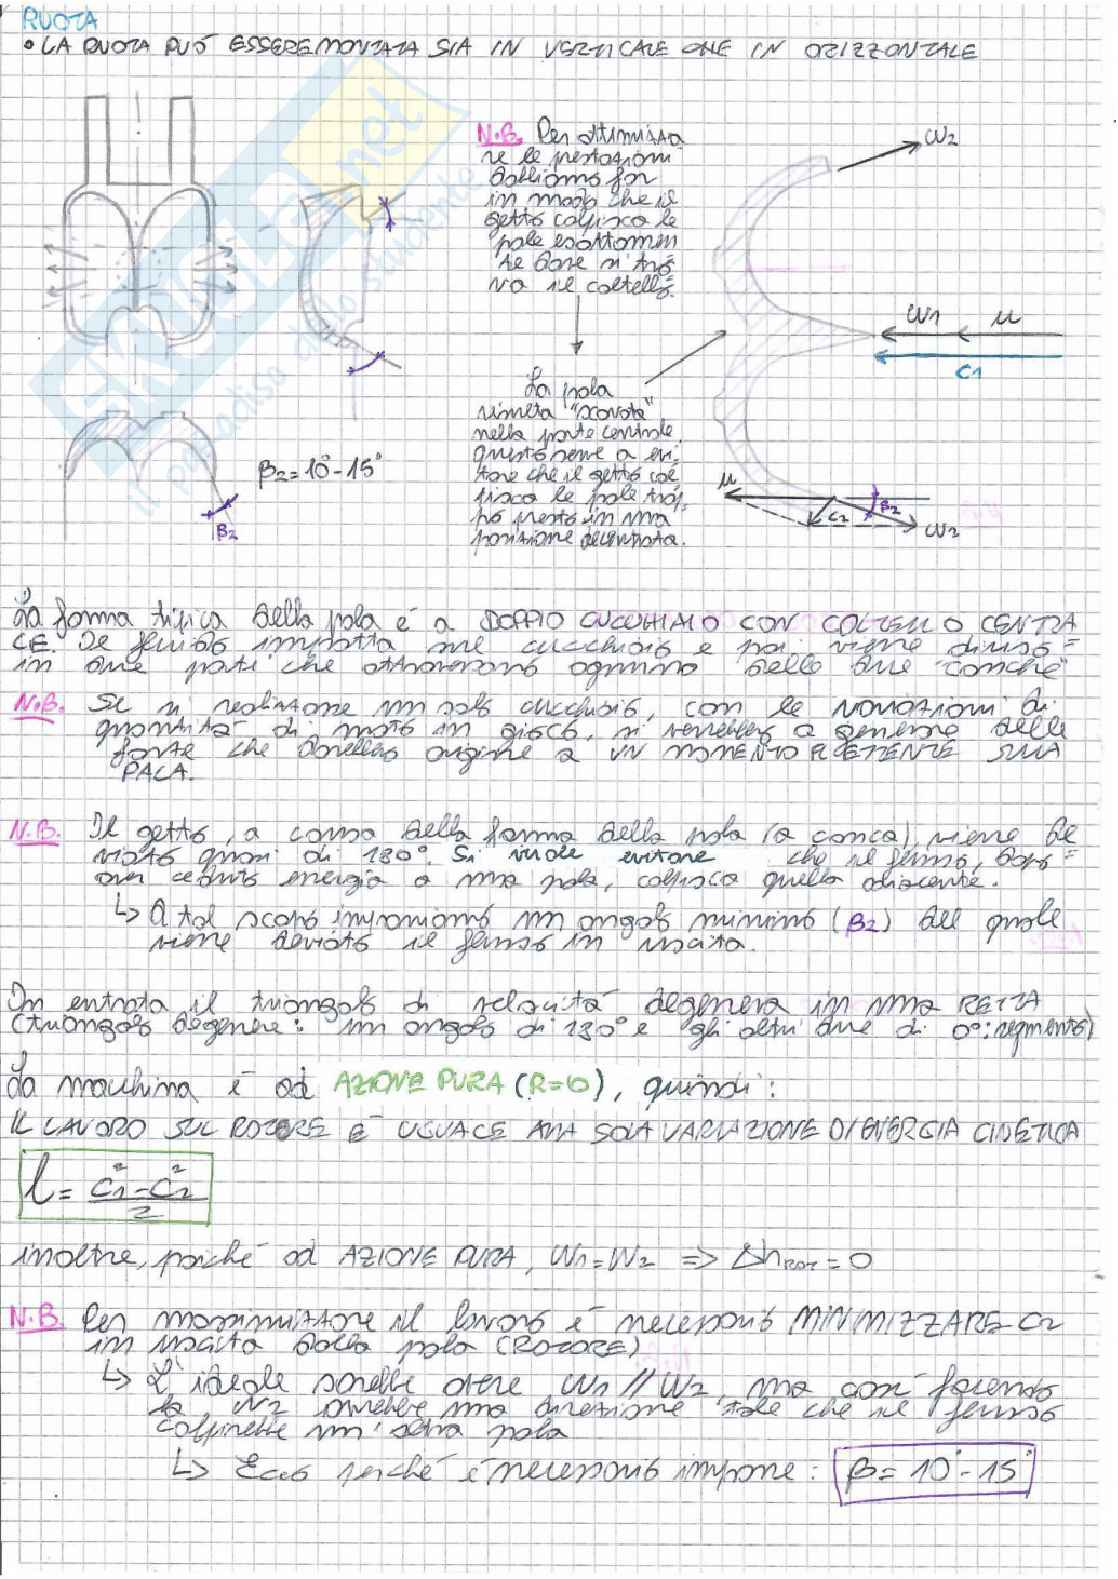 RUOTA
• LA RUOTA PUÒ ESSERE MONTATA SIA IN VERTICALE CHE IN ORIZZONTALE
N.B. Per ottimizza
re le prestazioni
dobbiamo far
in modo che il
getto colpisca le
pale esattamen
te dove si tro=
va il coltello.
La pala
risulta "scavata"
nella parte centrale,
questo serve a evi=
tare che il getto col
pisca le pale trop
po presto in una
posizione decentrata.
w2
w1 u
c1
u
c2
β2
w2
β2=10°-15°
β2
SKUOLA.net
il paradiso dello studente
La forma tipica della pala è a DOPPIO CUCCHIAIO CON COLTELLO CENTRA
LE. Il fluido impatta sul cucchiaio e poi viene diviso=
in due parti che attraversano ognuno delle due "conche"
N.B. Se si realizzasse un solo cucchiaio, con le variazioni di
quantità di moto in gioco, si verrebbero a generare delle
forze che darebbero origine a UN MOMENTO FLETTENTE SULLA
PALA.
N.B. Il getto, a causa della forma della pala (a conca), viene de
viato quasi di 180°. Si vuole evitare che il fluido, dopo=
aver ceduto energia a una pala, colpisca quella adiacente.
↳ A tal scopo imponiamo un angolo minimo (β2) del quale
viene deviato il fluido in uscita.
In entrata il triangolo di velocità degenera in una RETTA
(triangolo degenere: un angolo di 180° e gli altri due di 0°: segmento)
La macchina è ad AZIONE PURA (R=0), quindi:
IL LAVORO SUL ROTORE È UGUALE ALLA SOLA VARIAZIONE DI ENERGIA CINETICA
l = c1²-c2² / 2
inoltre, poiché ad AZIONE PURA, w1=w2 => Δh ROT = 0
N.B. Per massimizzare il lavoro è necessario MINIMIZZARE c2
in uscita dalla pala (ROTORE)
↳ L'ideale sarebbe avere w1 // w2, ma così facendo
la w2 avrebbe una direzione tale che il fluido
colpirebbe un'altra pala
↳ Ecco perché è necessario imporre: β=10°-15°